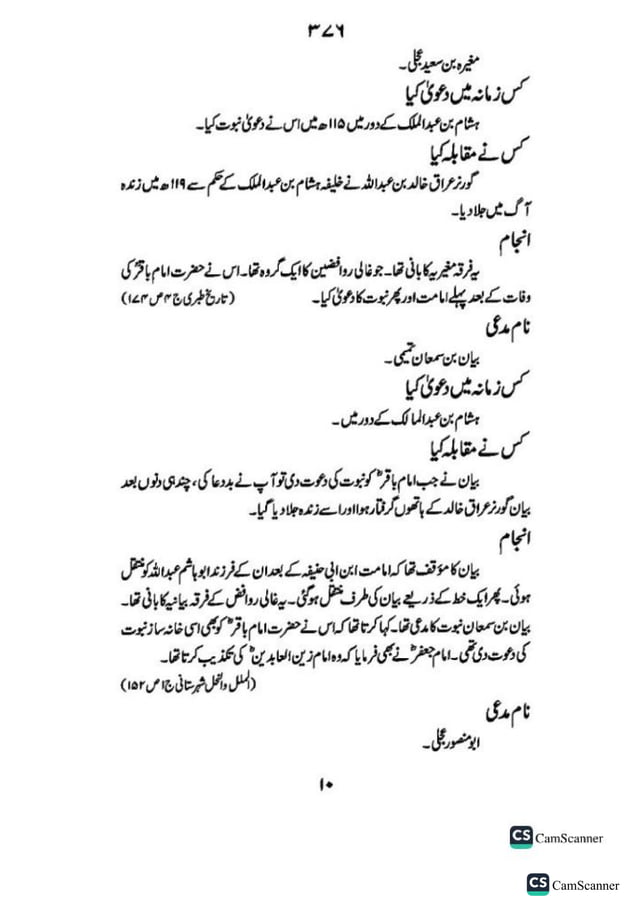 ۳۷۶
مغیرہ بن سعید عجلی۔
کس زمانہ میں دعویٰ کیا
ہشام بن عبدالملک کے دور میں ۱۱۵ھ میں اس نے دعویٰ نبوت کیا۔
کس نے مقابلہ کیا
گورنر عراق خالد بن عبداللہ نے خلیفہ ہشام بن عبدالملک کے حکم سے ۱۱۹ھ میں زندہ
آگ میں جلا دیا۔
انجام
یہ فرقہ مغیریہ کا بانی تھا۔ جو غالی روافضین کا ایک گروہ تھا۔ اس نے حضرت امام باقرؒ کی
وفات کے بعد پہلے امامت اور پھر نبوت کا دعویٰ کیا۔ (تاریخ طبری ج۴ ص۱۷۴)
نام مدعی
بیان بن سمعان تمیمی۔
کس زمانہ میں دعویٰ کیا
ہشام بن عبدالمالک کے دور میں۔
کس نے مقابلہ کیا
بیان نے جب امام باقرؒ کو نبوت کی دعوت دی تو آپ نے بددعا کی، چند ہی دنوں بعد
بیان گورنر عراق خالد کے ہاتھوں گرفتار ہوا اور اسے زندہ جلا دیا گیا۔
انجام
بیان کا مؤقف تھا کہ امامت ابن ابی حنیفہ کے بعد ان کے فرزند ابو ہاشم عبداللہ کو منتقل
ہوئی۔ پھر ایک خط کے ذریعے بیان کی طرف منتقل ہو گئی۔ یہ غالی روافض کے فرقہ بیانیہ کا بانی تھا۔
بیان بن سمعان نبوت کا مدعی تھا۔ کہا کرتا تھا کہ اس نے حضرت امام باقرؒ کو بھی اسی خانہ ساز نبوت
کی دعوت دی تھی۔ امام جعفرؒ نے بھی فرمایا کہ وہ امام زین العابدینؒ کی تکذیب کرتا تھا۔
(الملل والنحل شہرستانی ج۱ ص۱۵۲)
نام مدعی
ابو منصور عجلی۔
۱۰
CS CamScanner
CS CamScanner